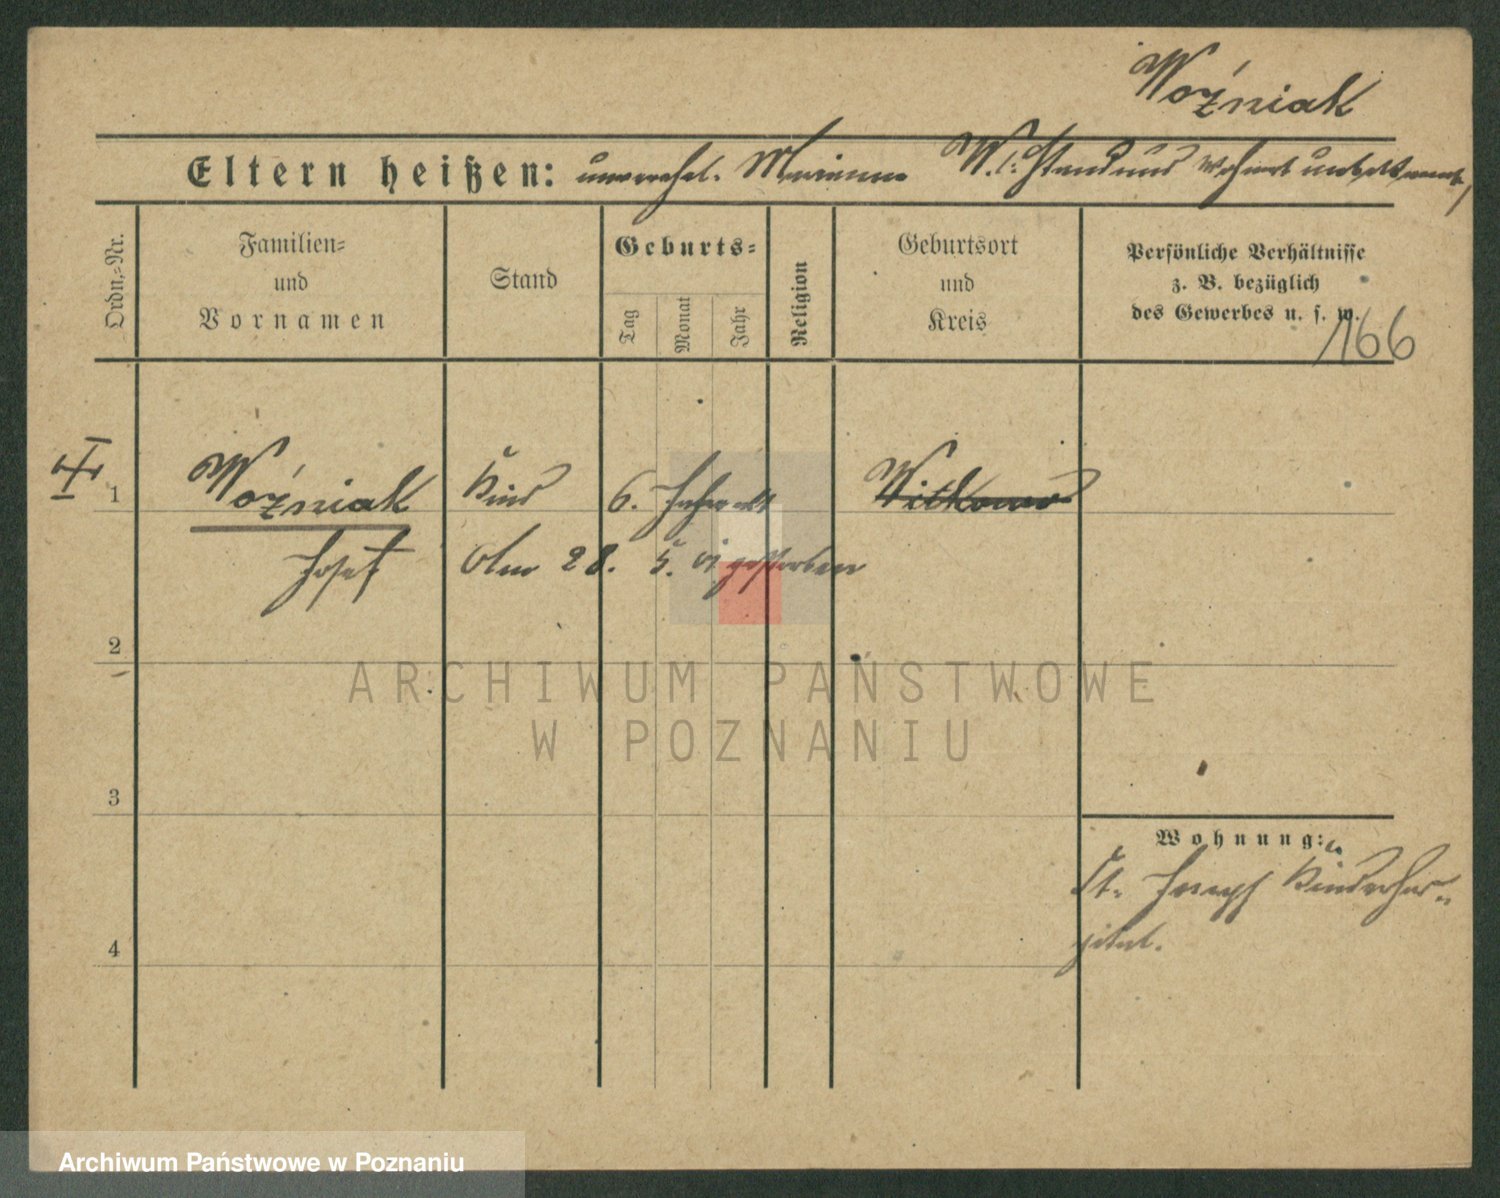 Woźniak
Eltern heißen: unverehel. Marianna W. Stand und Wohnort unbekannt,
Ordn.-Nr.
Familien- und Vornamen
Stand
Geburts-
Tag
Monat
Jahr
Religion
Geburtsort und Kreis
Persönliche Verhältnisse
z. B. bezüglich
des Gewerbes u. s. w.
166
1 Woźniak Kind 6. Jahre alt Witkowo
Josef Am 28. 5. gestorben
2
ARCHIWUM PAŃSTWOWE
W POZNANIU
3
Wohnung:
St. Joseph Kinderhos-
pital.
4
Archiwum Państwowe w Poznaniu